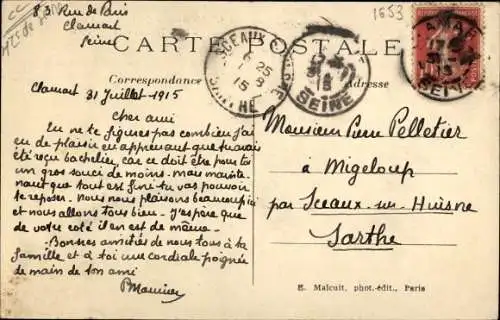 83 Rue de Paris
Clamart
Seine
1653
CARTE POSTALE
Correspondance
Adresse
SCEAUX
25
15
SARTHE
CLAMART
31
15
SEINE
Clamart 31 Juillet 1915
Cher ami
Tu ne te figures pas combien j'ai
eu de plaisir en apprenant que tu avais
été reçu bachelier, car ce doit être pour toi
un gros souci de moins. mais mainte-
nant que tout est fini tu vas pouvoir
te reposer. Nous nous plaisons beaucoup ici
et nous allons tous bien. J'espère que
de votre coté il en est de même.
Bonnes amitiés de nous tous à ta
famille et à toi une cordiale poignée
de main de ton ami
Monsieur Pierre Pelletier
à Migeloup
par Sceaux-sur-Huisne
Sarthe
E. Malcuit, phot.-édit., Paris